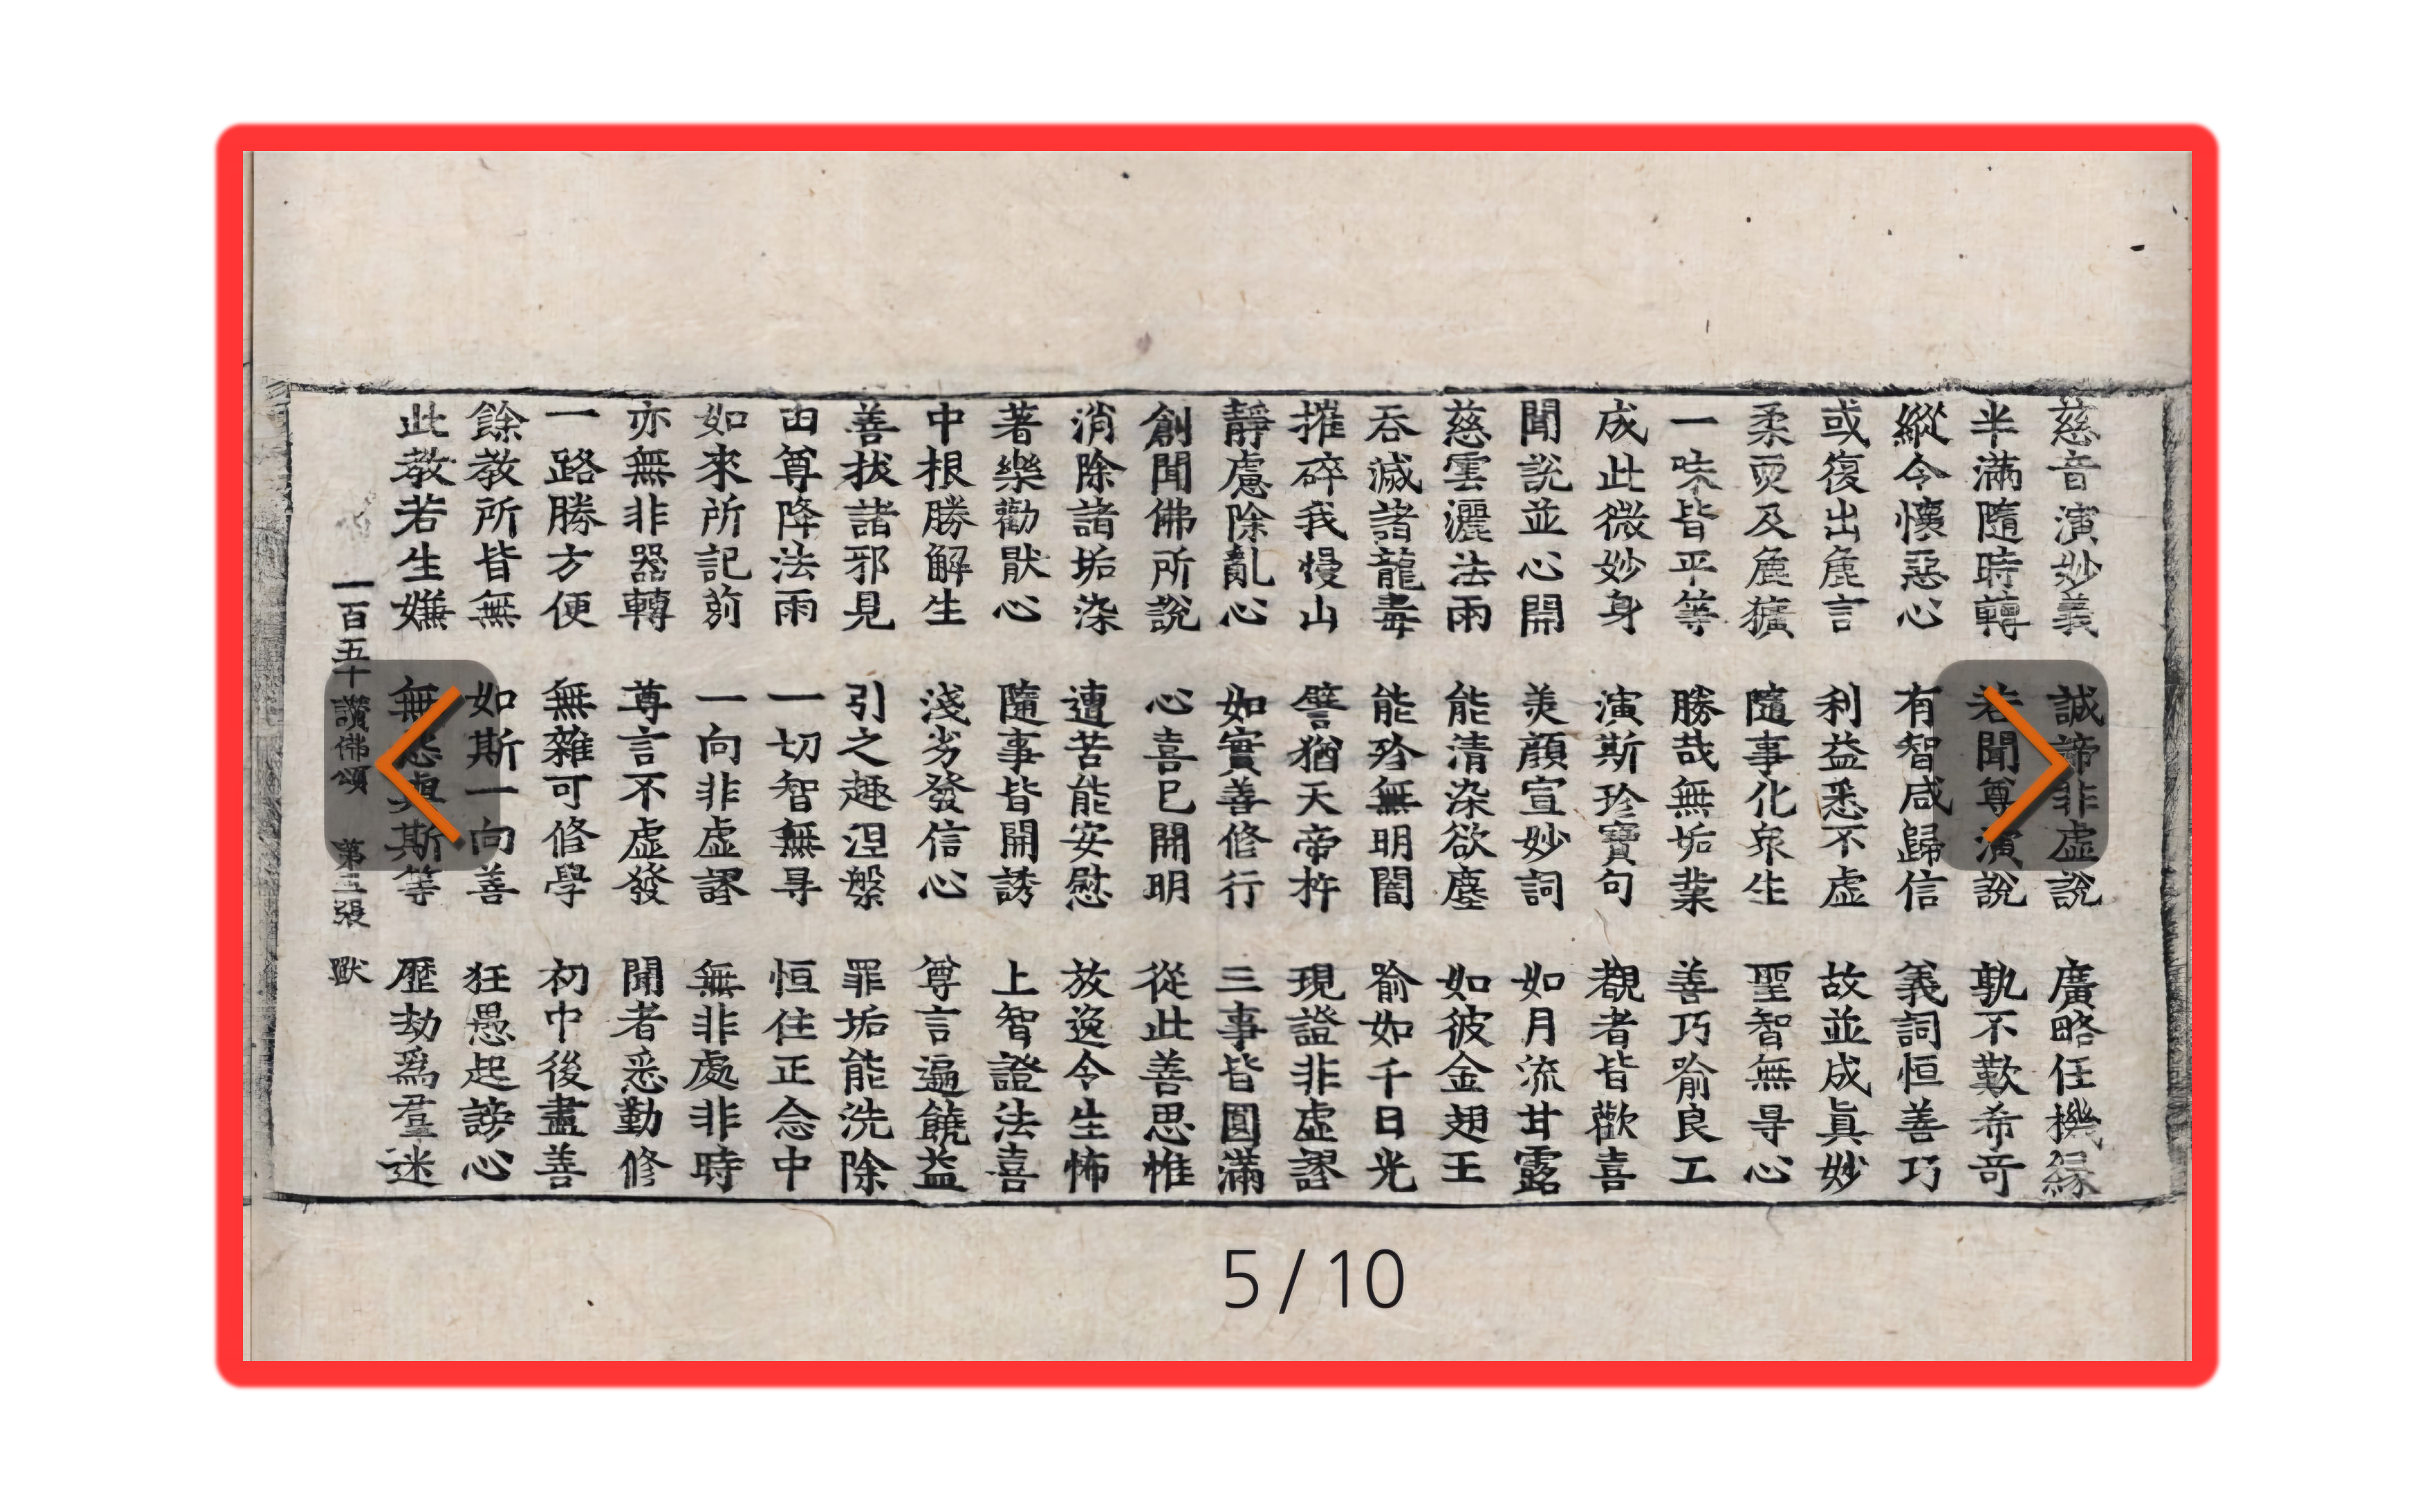 慈音演妙義 誠諦非虛說 廣略任機緣
半滿隨時轉 若聞尊演說 孰不歎希奇
縱令懷惡心 有智咸歸信 義詞恒善巧
或復出麁言 利益悉不虛 故並成眞妙
柔耎及麁獷 隨事化衆生 聖智無㝵心
一味皆平等 勝哉無垢業 善巧喻良工
成此微妙身 演斯珍寶句 覩者皆歡喜
聞說並心開 美顏宣妙詞 如月流甘露
慈雲灑法雨 能清染欲塵 如彼金翅王
吞滅諸龍毒 能殄無明闇 喻如千日光
摧碎我慢山 譬猶天帝杵 現證非虛謬
靜慮除亂心 如實善修行 三事皆圓滿
創聞佛所說 心喜已開明 從此善思惟
消除諸垢染 遭苦能安慰 放逸令生怖
著樂勸猒心 隨事皆開誘 上智證法喜
中根勝解生 淺劣發信心 尊言遍饒益
善拔諸邪見 引之趣涅槃 罪垢能洗除
由尊降法雨 一切智無㝵 恒住正念中
如來所記莂 一向非虛謬 無非處非時
亦無非器轉 尊言不虛發 聞者悉勤修
一路勝方便 無雜可修學 初中後盡善
餘教所皆無 如斯一向善 狂愚起謗心
此教若生嫌 無怨與斯等 歷劫爲羣迷
一百五十讚佛頌 第三張 獸
5/10